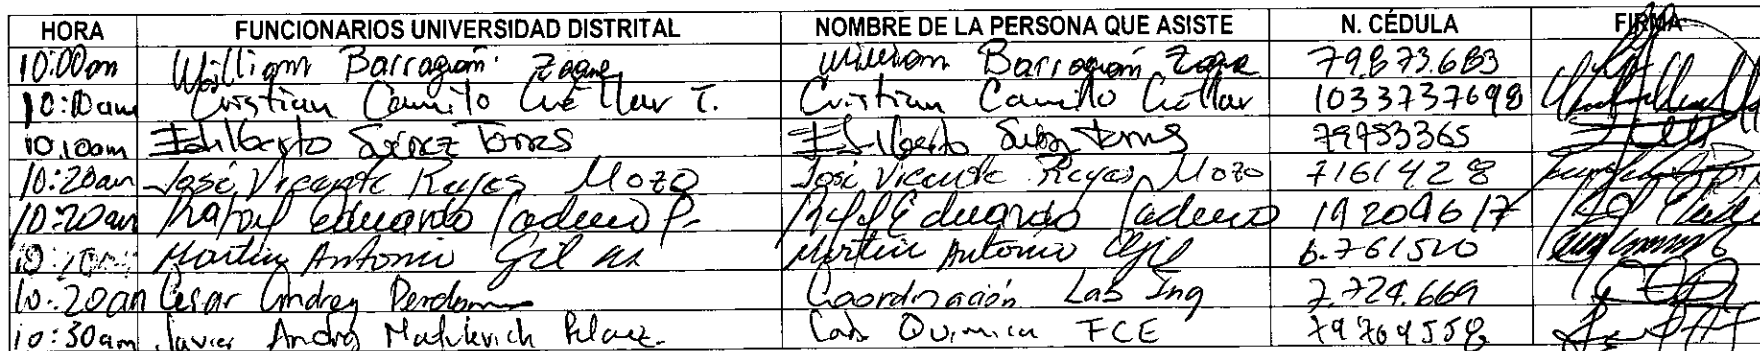 HORA FUNCIONARIOS UNIVERSIDAD DISTRITAL NOMBRE DE LA PERSONA QUE ASISTE N. CÉDULA FIRMA
10:00am William Barragán Zaque William Barragán Zaque 79.873.683
10:10am Cristian Camilo Cuéllar T. Cristian Camilo Cuéllar 1033737698
10:10am Edilberto Suárez Torres Edilberto Suárez Torres 79953365
10:20am José Vicente Reyes Mozo José Vicente Reyes Mozo 7161428
10:20am Rafael Eduardo Ladino P. Rafael Eduardo Ladino 19204617
Martin Antonio Gil Martin Antonio Gil 6.761520
10:20am Cesar Andrey Perdomo Coordinación Lab Ing 7.724.669
10:30am Javier Andrés Pelaez. Lab Química FCE